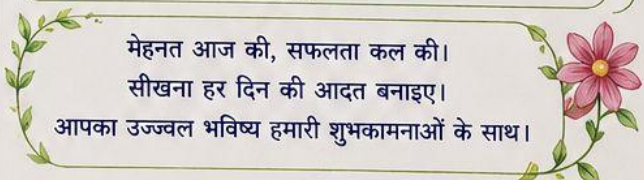 मेहनत आज की, सफलता कल की।
सीखना हर दिन की आदत बनाइए।
आपका उज्ज्वल भविष्य हमारी शुभकामनाओं के साथ।